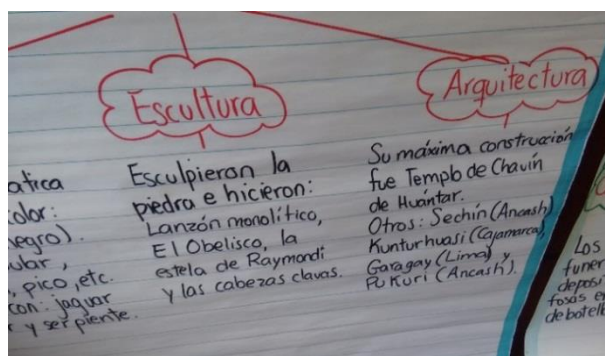 Escultura
Arquitectura
ática
color:
negro).
ular,
, pico, etc.
con: jaguar
y serpiente.
Esculpieron la
piedra e hicieron:
Lanzón monolítico,
El Obelisco, la
estela de Raymondi
y las cabezas clavas.
Su máxima construcción
fue Templo de Chavín
de Huántar.
Otros: Sechín (Ancash)
Kunturhuasi (Cajamarca),
Garagay (Lima) y
PuKuri (Ancash).
Los
funer
deposi
fosas e
de botell